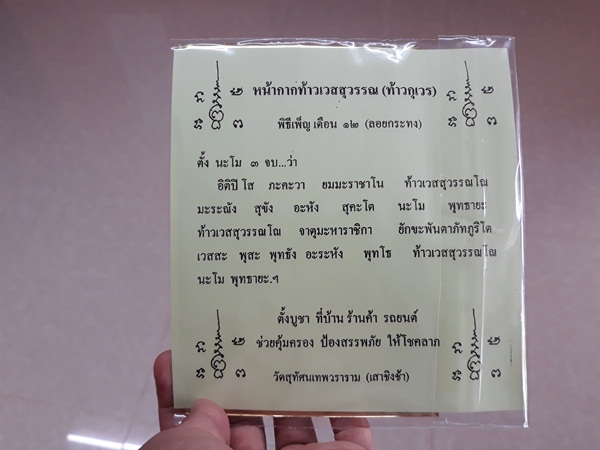 หน้ากากท้าวเวสสุวรรณ (ท้าวกุเวร)
พิธีเพ็ญ เดือน ๑๒ (ลอยกระทง)
ตั้ง นะโม ๓ จบ...ว่า
อิติปิ โส ภะคะวา ยมมะราชาโน ท้าวเวสสุวรรณโณ
มะระณัง สุขัง อะหัง สุคะโต นะโม พุทธายะ
ท้าวเวสสุวรรณโณ จาตุมะหาราชิกา ยักขะพันตาภัทภูริโต
เวสสะ พุสะ พุทธัง อะระหัง พุทโธ ท้าวเวสสุวรรณโณ
นะโม พุทธายะ.ฯ
ตั้งบูชา ที่บ้าน ร้านค้า รถยนต์
ช่วยคุ้มครอง ป้องสรรพภัย ให้โชคลาภ
วัดสุทัศนเทพวราราม (เสาชิงช้า)